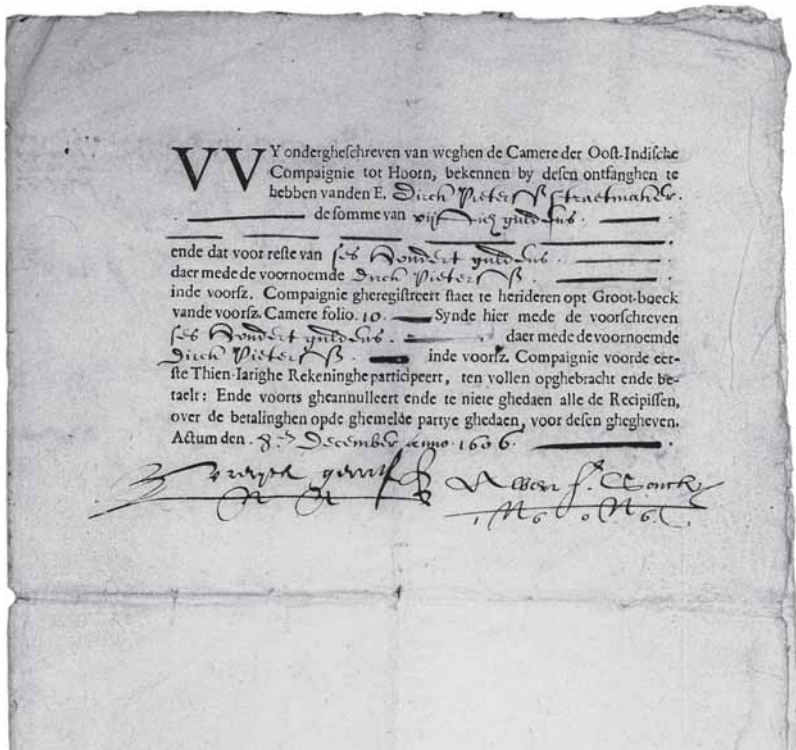 VVY ondergheschreven van weghen de Camere der Oost-Indische
Compaignie tot Hoorn, bekennen by desen ontfanghen te
hebben vanden E. Dirck Pieterss Straetmaker.
de somme van vijftich guldens.
ende dat voor reste van ses Hondert guldens.
daer mede de voornoemde Dirck Pieterss
inde voorsz. Compaignie gheregistreert staet te herideren opt Groot-boeck
vande voorsz. Camere folio. 10. Synde hier mede de voorschreven
ses Hondert guldens. daer mede de voornoemde
Dirck Pieterss inde voorsz. Compaignie voorde eer-
ste Thien-Iarighe Rekeninghe participeert, ten vollen opghebracht ende be-
taelt: Ende voorts gheannulleert ende te niete ghedaen alle de Recipissen,
over de betalinghen opde ghemelde partye ghedaen, voor desen ghegheven.
Actum den. 8. December anno. 1606.